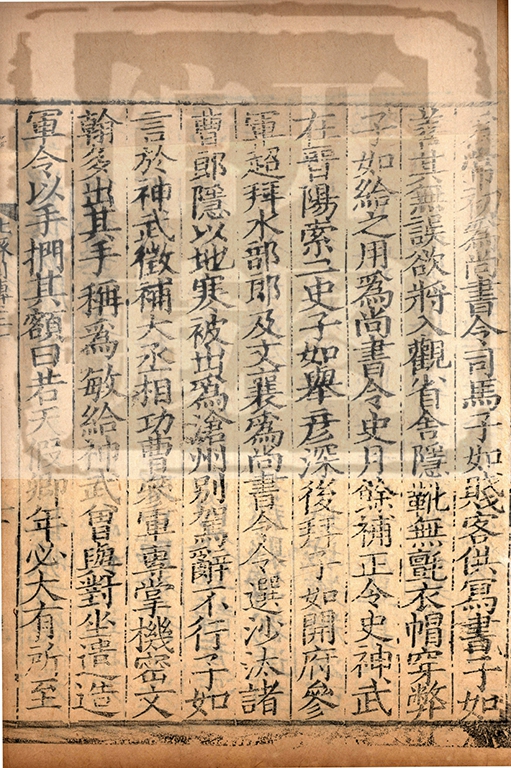 爲常初爲尚書令司馬子如賤客供寫書子如
善其無誤欲將入觀省舍隱靴無氈衣帽穿弊
子如給之用爲尚書令史月餘補正令史神武
在晉陽索二史子如舉彦深後拜子如開府參
軍超拜水部郎及文襄爲尚書令令選沙汰諸
曹郎隱以地寒被出爲滄州別駕辭不行子如
言於神武徵補大丞相功曹參軍專掌機密文
翰多出其手稱爲敏給神武曾與對坐遣造
軍令以手捫其額曰若天假卿年必大有所至